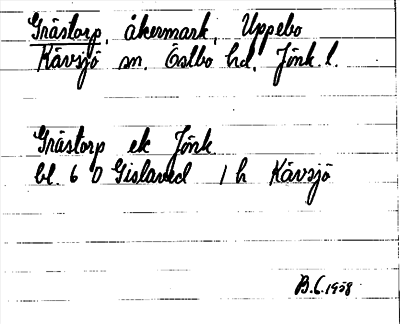 Grästorp, åkermark, Uppebo
Kävsjö sn. Östbo hd, Jönk. l.
Grästorp ek Jönk
bl. 6 D Gislaved 1 h Kävsjö
B.C. 1958